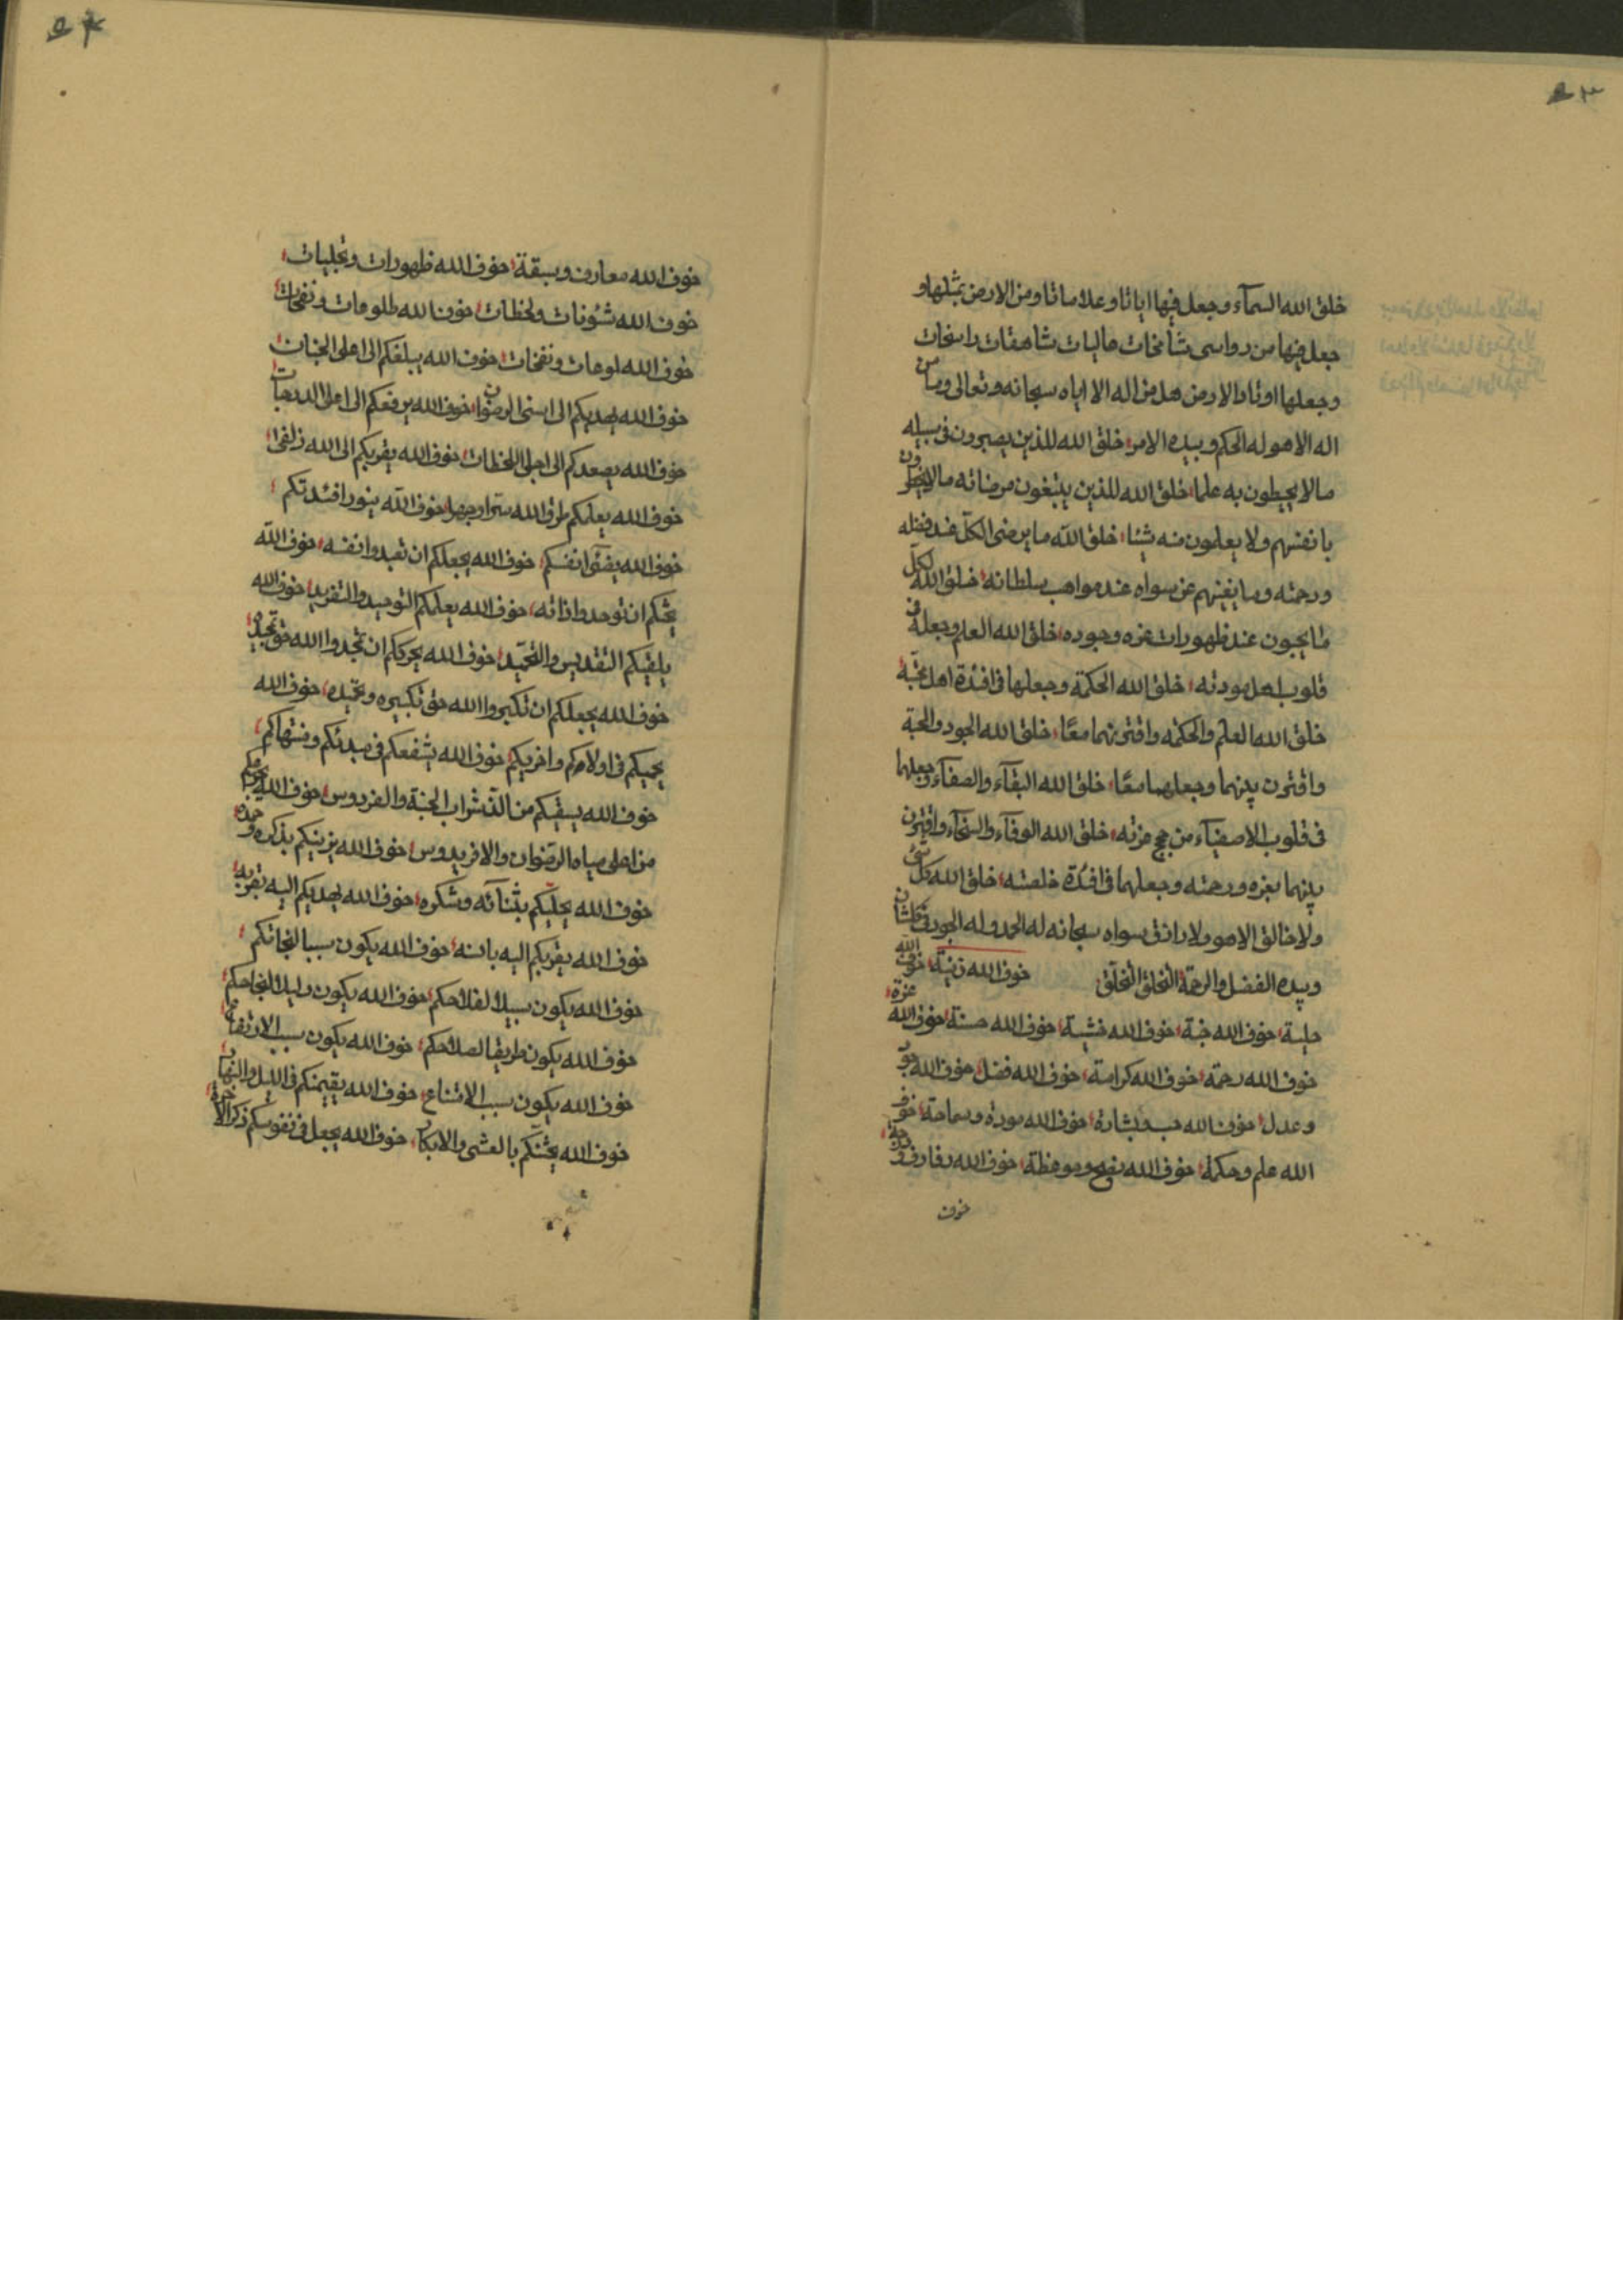 ٥٣
خلق الله السمآء وجعل فيها اياتا وعلاماتا ومن الارض بمثلها و
جعل فيها من رواسى شامخات عاليات شاهقات راسخات
وجعلها اوتاد الارض هل من اله الا اياه سبحانه وتعالى وما من
اله الا هو له الحكم وبيده الامر خلق الله للذين يصبرون فى سبيله
مالا يحيطون به علما خلق الله للذين يبتغون مرضاته مالا
بانفسهم ولا يعلمون منه شيئا خلق الله ما يرضى الكل عند فضله
ورحمته وما يغنيهم عن سواه عند مواهب سلطانه خلق الله لكل
ما يحبون عند ظهورات عزه وجوده خلق الله العلم وجعله فى
قلوب اهل مودته خلق الله الحكمة وجعلها فى افئدة اهل محبته
خلق الله العلم والحكمة واقترنهما معًا خلق الله الجود والمحبة
واقترن بينهما وجعلهما معًا خلق الله البقآء والصفآء وجعلهما
فى قلوب الاصفيآء من عزته خلق الله الوفآء والسخآء واقترن
بينهما بعزه ورحمته وجعلهما فى افئدة خلصته خلق الله كل شئ
ولا خالق الا هو ولا رازق سواه سبحانه له الحمد وله الجود فى كل شان
وبيده الفضل والرحمة التخلق التخلق خوف الله زينة خوف الله
حلية خوف الله خوف الله خشية خوف الله حسنة خوف الله عزة
خوف الله رحمة خوف الله كرامة خوف الله فضل خوف الله جود
وعدل خوف الله حب وبشارة خوف الله مودة وسماحة خوف
الله علم وحكمة خوف الله نصح وموعظة خوف الله رفارف و درجة
خوف
٥٤
خوف الله معارف وسبقة خوف الله ظهورات وتجليات
خوف الله شئونات ولحظات خوف الله طلوعات ونفحات
خوف الله لوحات ونفخات خوف الله يبلغكم الى اعلى الجنات
خوف الله يهديكم الى اسنى الرضوان خوف الله يرفعكم الى اعلى الدرجات
خوف الله يصعدكم الى اجلى اللحظات خوف الله يقربكم الى الله زلفى
خوف الله يعلمكم طرق الله سرا وجهرا خوف الله ينور افئدتكم
خوف الله يضئ انفسكم خوف الله يجعلكم ان تعبدوا نفسه خوف الله
يحثكم ان توحدوا ذاته خوف الله يعلمكم التوحيد والتفريد خوف الله
يلقيكم التقديس والتمجيد خوف الله يحرككم ان تمجدوا الله حق تمجيده
خوف الله يجعلكم ان تكبروا الله حق تكبيره وتمجيده خوف الله
يحييكم فى اولاكم واخريكم خوف الله يشفعكم فى مبدئكم ومنتهاكم
خوف الله يسقيكم من الذ شراب الجنة والفردوس خوف الله
من اعلى مياه الرضوان والافريدوس خوف الله يزينكم بذكره وحمده
خوف الله يحليكم بثنآئه وشكره خوف الله يهديكم اليه بقربه
خوف الله يقربكم اليه بانسه خوف الله يكون سببا لنجاتكم
خوف الله يكون سبيلا لفلاحكم خوف الله يكون دليلا لنجاحكم
خوف الله يكون طريقا لصلاحكم خوف الله يكون سبب الارتفاع
خوف الله يكون سبب الامتناع خوف الله يقيمنكم فى الليل والنهار
خوف الله يحثنكم بالعشى والابكار خوف الله يجعل فى نفوسكم ذكر الاخرة